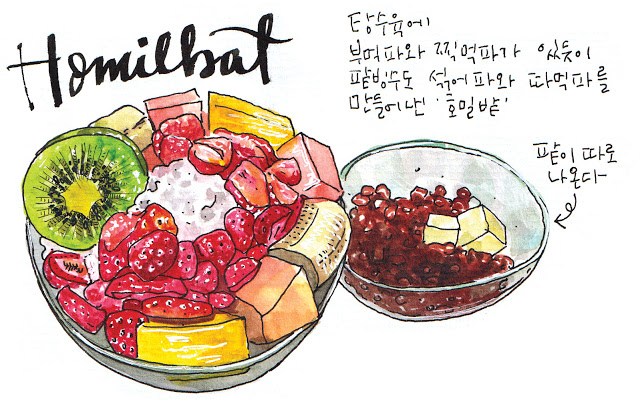 Homilbat
탕수육에
부먹파와 찍먹파가 있듯이
팥빙수도 섞어파와 따먹파를
만들어낸 '호밀밭'
팥이 따로
나온다